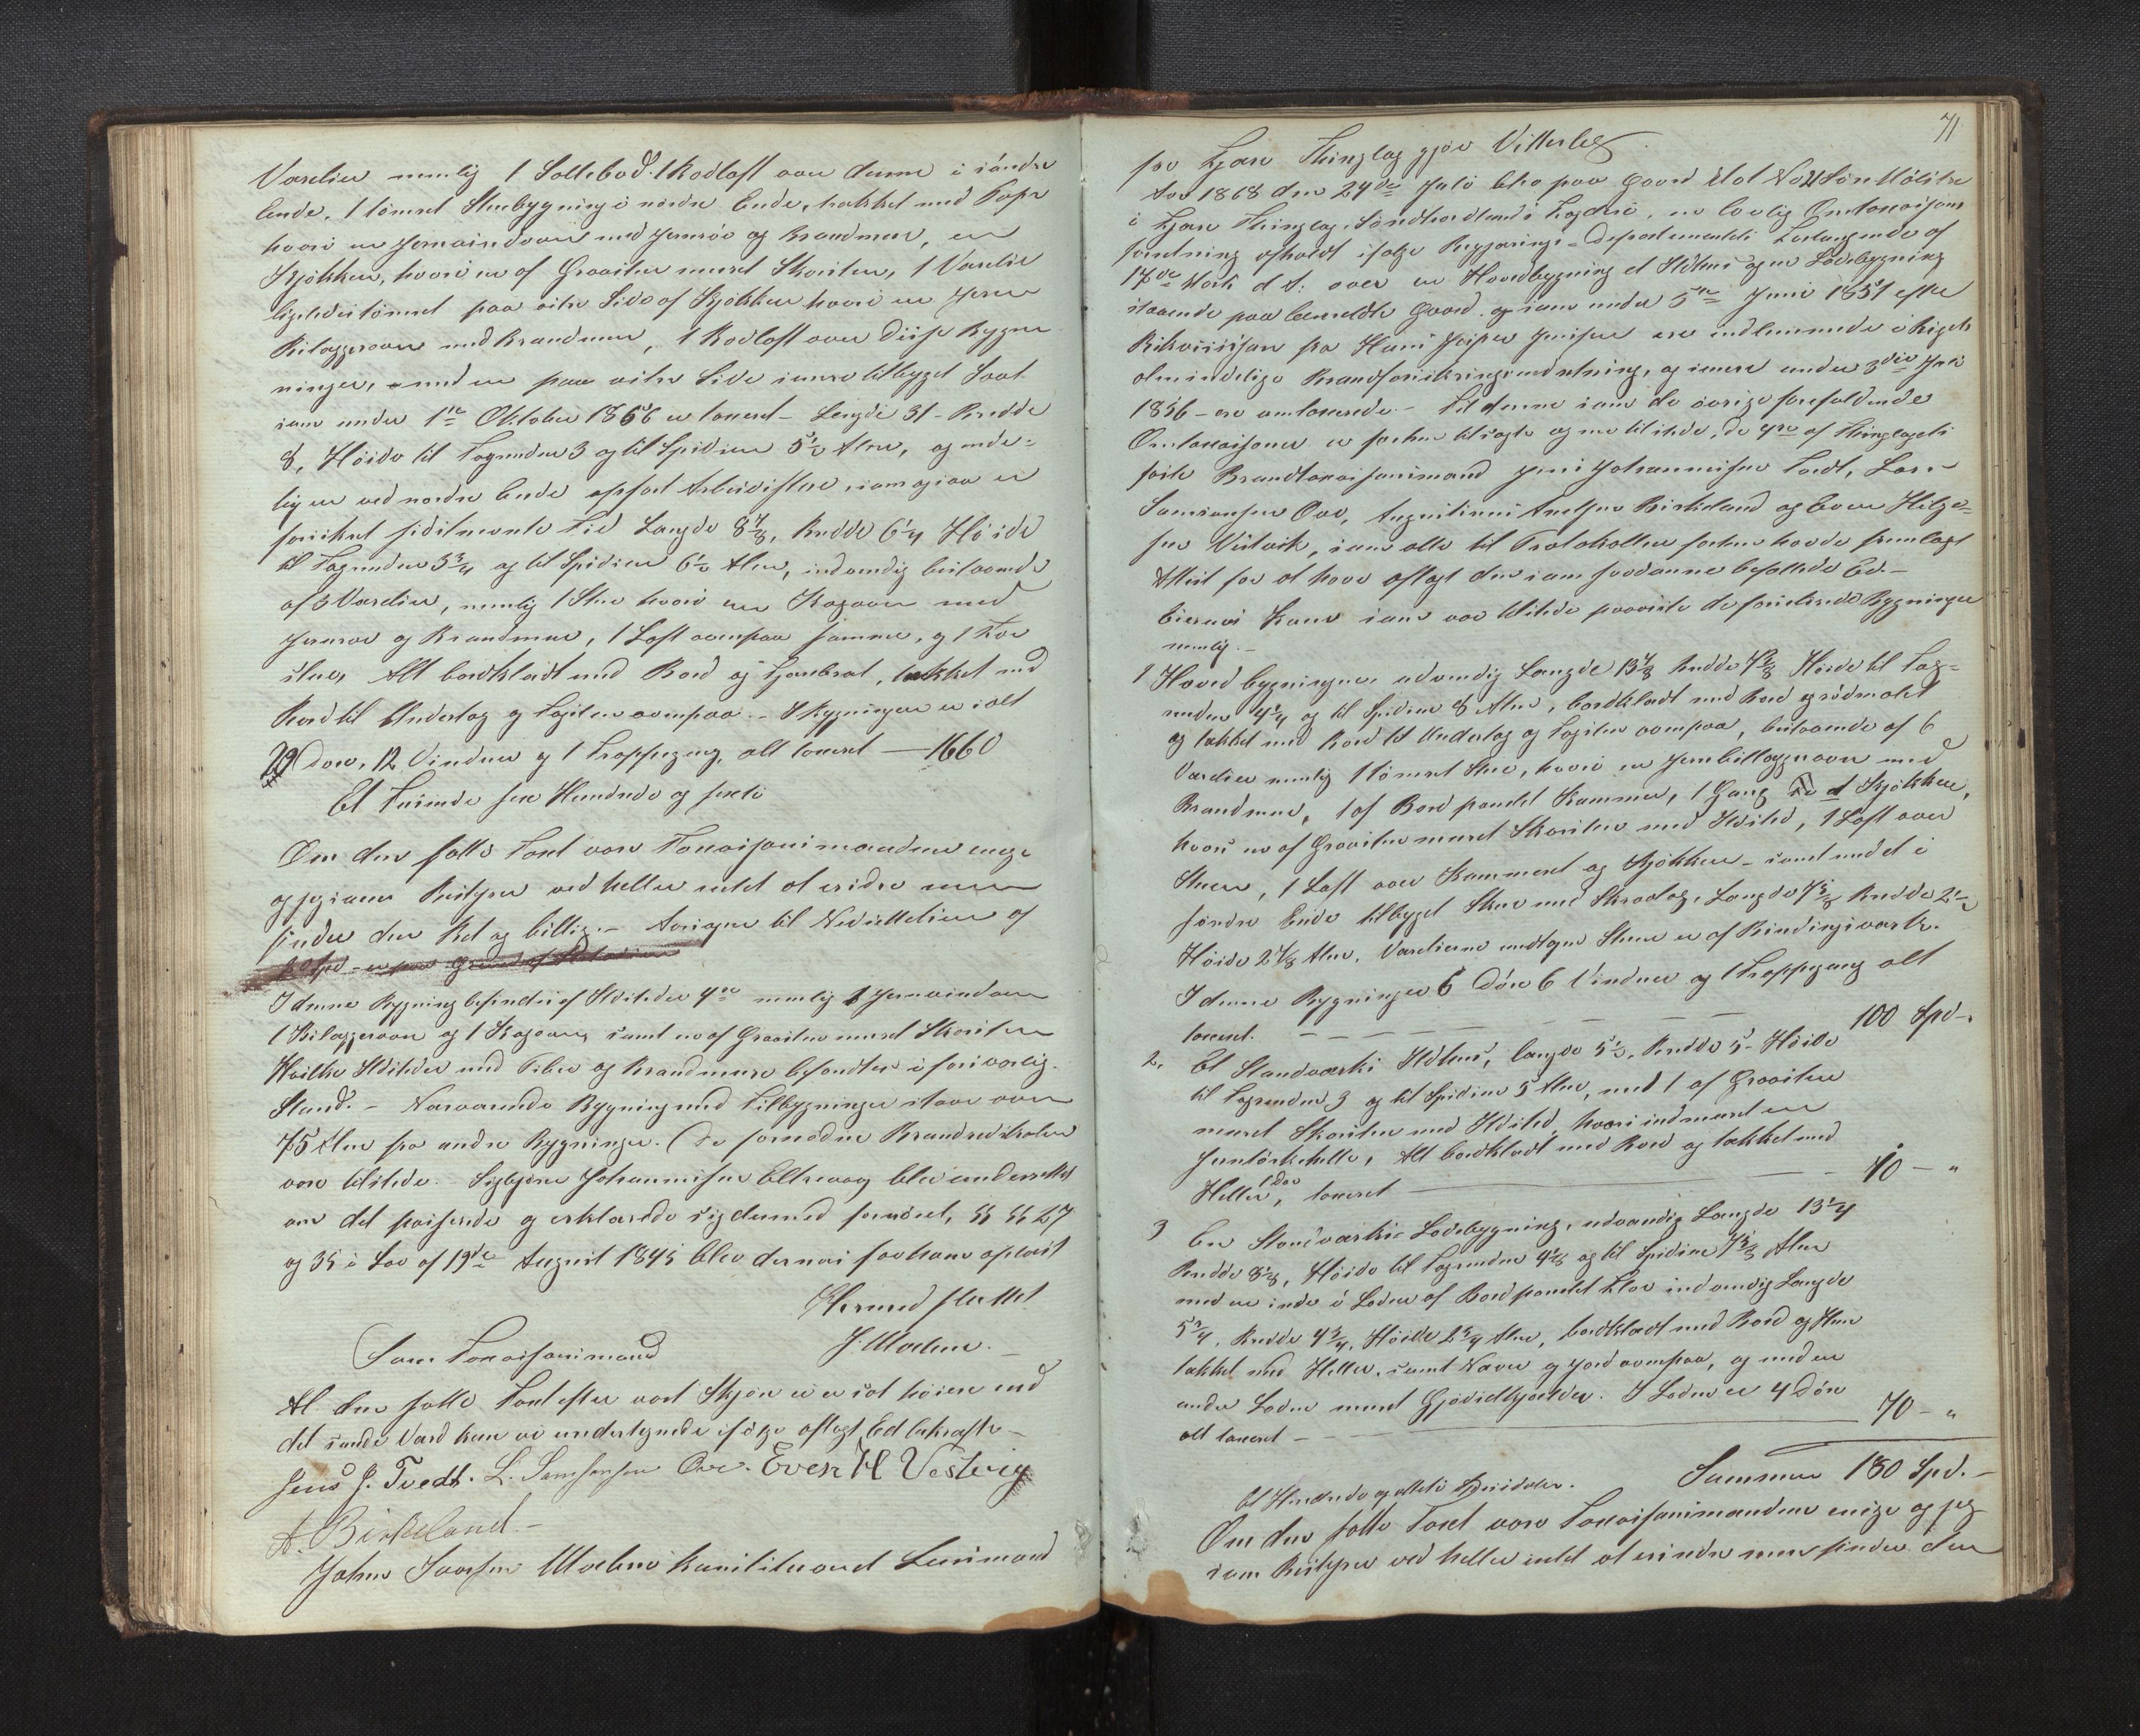 Værelser nemlig 1 Sallebod. 1 Kodloft over denne i søndre
Ende, 1 tømret Stuebygning i nordre Ende, takket med Tagst
hvori er Jernvindovn med Jernrør og Brandmur, en
Kjøkken, hvori er af Graasten muret Skorsten, 1 Værelse
ligeledes tømret paa østre Side af Kjøkken hvori er Jern
Bilæggerovn med Brandmur, 1 Kodloft over disse Bygn
ninger, med en paa østre Side isemre tilbygt Svol
som under 1ste Oktober 1856 er taxeret - Længde 31 - Bredde
8, Høide til Tagrenden 3 og til Spidsen 5 1/2 Alen, og ende-
lig en ved nordre Ende opført
forsikret sidstmeldte Tid Længde 8 7/8, Bredde 6 1/4 Høide
til Tagrenden 3 3/4 og til Spidsen 6 1/2 Alen, indvendig bestaaende
af 3 Værelser, nemlig 1 Stue hvori en Kogovn med
Jernrør og Brandmur, 1 Loft ovenpaa samme, og 1 For
stue, Alt bordklædt med Bord og tækket med
Bord til Underlag og Tagsten ovenpaa. - I Bygningen er i alt
29 Døre, 12 Vinduer og 1 Trappegang, alt taxeret — 1660
Et Tusinde sex Hundrede og sexti
Om den satte Taxt vare Taxationsmændene enige
og jeg som Bestyrer ved heller intet at erindre men
finder den Ret og billig. - Aarsagen til Nedsættelsen af
I denne Bygning befindes af Ildsteder 4re nemlig 1 Jernvindovn
1 Bilæggerovn og 1 Kogovn, samt en af Graasten muret Skorsten
Hvilke Ildsteder med Piber og Brandmure befandtes i forsvarlig
Stand. - Nærværende Bygning med Tilbygninger staar over
75 Alen fra andre Bygninger. De fornødne Brandredskaber
vare tilstede. Sigbjørn Johannesen Eltrevaag blev underrettet
om det passerede og erklærede sig dermed fornøiet, §§ 27
og 35 i Lov af 19de August 1845 blev dernæst for ham oplæst
Hermed sluttet
J. Moehne.
Som Taxationsmænd
At den satte Taxt efter vort Skjøn ei er sat høiere end
det sande Værd kan vi undertegnede ifølge aflagt Ed bekræfte -
Jens J. Tvedt. L. Samsonsen Ove. Even H Vestvig
A. Birkeland -
John Ivarsen Moehne konstitueret Lensmand
71
for Fjære Thinglag gjør Vitterligt
Aar 1868 den 24de Juli blev paa Gaard No
i Fjære Thinglag, Søndhordlands Fogderi, en lovlig Omtaxations
forretning afholdt ifølge Regjerings-Departementets Forlangende af
17de Mai d A: over en Hovedbygning et Ildhus og en Ladebygning
staaende paa bemeldte Gaard, og som under 5te Juni 1851 efter
Rekvisition fra Hans Jensen ere indlemmede i Rigets
almindelige Brandforsikringsindretning, og senere under 3die Juli
1856 - ere omtaxerede. - Til denne som de øvrige forefaldende
Omtaxationer er forhen tilsagte og nu tilstede, de 4re af Thinglagets
faste Brandtaxationsmænd Jens Johannesen Tvedt, Lars
Samsonsen Ove, Augustinus Andersen Birkeland og Even Helge-
sen Vestvik, som alle til Protokollen forhen havde fremlagt
Attest for at have aflagt den som saadanne befalede Ed. -
Eierens Kone som var tilstede paaviste de forsikrede Bygninger
nemlig. -
1 Hovedbygningen udvendig Længde 13 7/8 Bredde 7 7/8 Høide til Tag-
renden 4 3/4 og til Spidsen 8 Alen, bordklædt med Bord og rødmalet
og tækket med Bord til Underlag og Tagsten ovenpaa, bestaaende af 6
Værelser nemlig 1 tømret Stue, hvori er Jernbilæggerovn med
Brandmur, 1 af Bord panelt Kammer, 1 Gang et Kjøkken,
hvori er af Graasten muret Skorsten med Ildsted, 1 Loft over
Stuen, 1 Loft over Kammeret og Kjøkken - samt med et i
søndre Ende tilbygt Skur med Skraatag, Længde 7 5/8 Bredde 2 1/2
Høide 2 7/8 Alen, Værelserne undtagen Stuen er af Bindingsværk.
I denne Bygning er 6 Døre 6 Vinduer og 1 Trappegang alt
taxeret. — — — — — — — 100 Spd -
2. Et Standværks Ildhus, længde 5 1/2, Bredde 5 - Høide
til Tagrenden 3 og til Spidsen 5 Alen, med 1 af Graasten
muret Skorsten med Ildsted, hvori indmuret en
Jerntørkehelle, Alt bordklædt med Bord og tækket med
Heller, 1 Dør taxeret — — — 10 - "
3 En Standværks Ladebygning, udvendig Længde 13 1/4
Bredde 8 1/8, Høide til Tagrenden 4 1/8 og til Spidsen 7 5/8 Alen
med en inde i Laden af Bord panelt Flor indvendig Længde
5 3/4, Bredde 4 3/4, Høide 2 3/4 Alen, bordklædt med Bord og
tækket med Heller, samt Næver og Jord ovenpaa, og med en
under Laden muret Gjødselkjælder. I Laden er 4 Døre
alt taxeret — — — 70 - "
Summer 180 Spd. -
Et Hundrede og otteti Speciedaler.
Om den satte Taxt vare Taxationsmændene enige og jeg
som Bestyrer ved heller intet at erindre men finder den